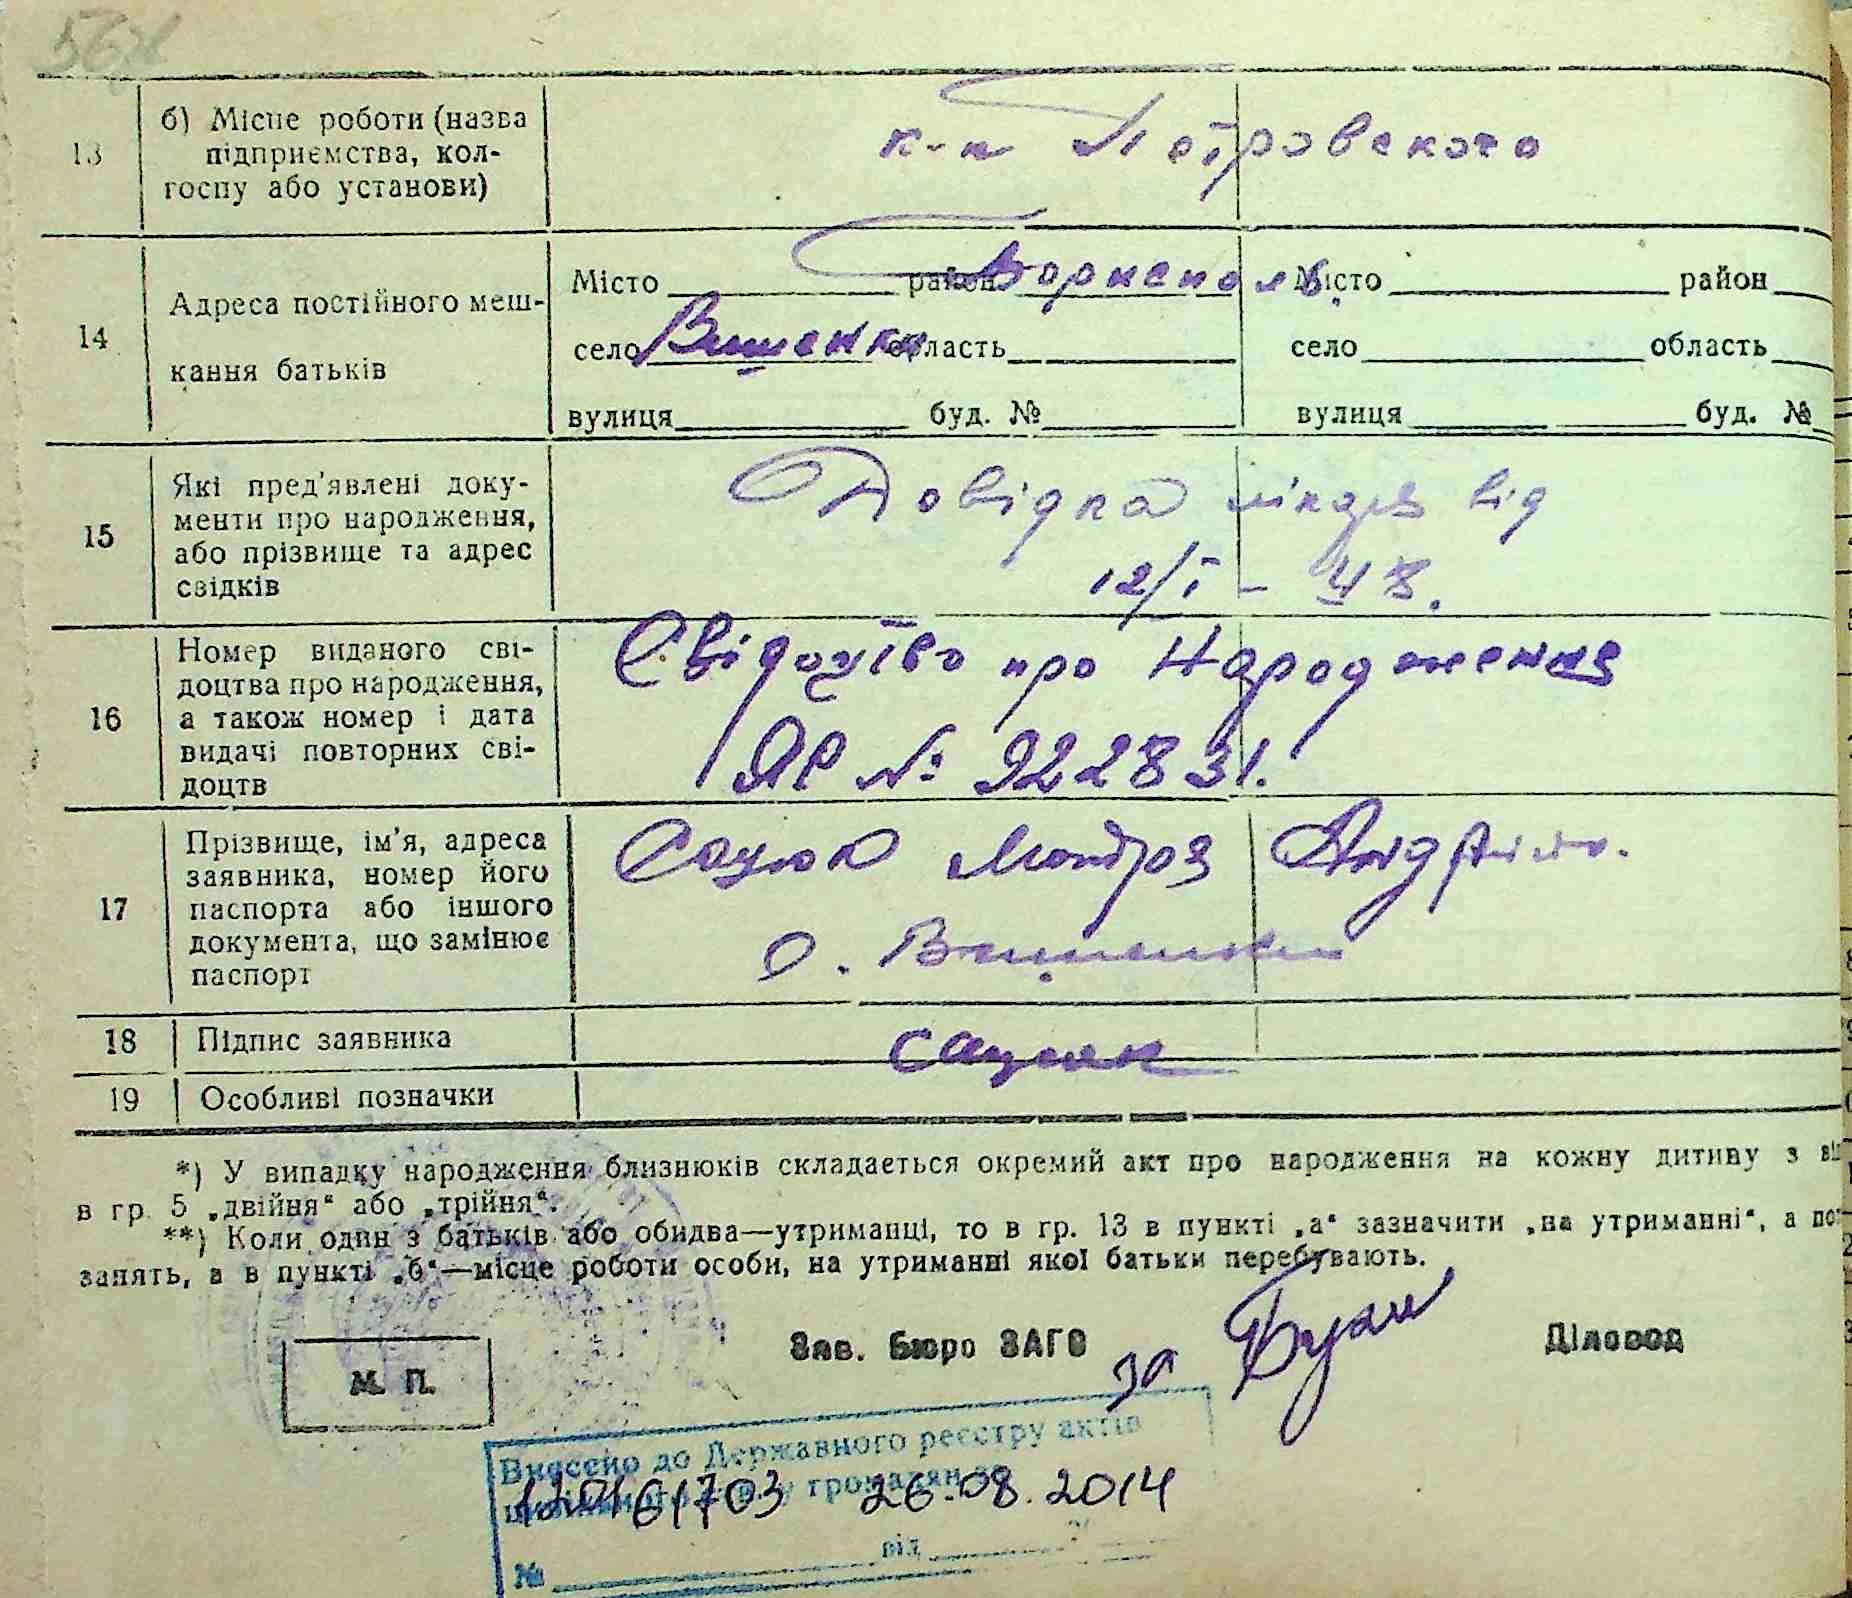 56
13 б) Місце роботи (назва
підприємства, кол-
госпу або установи)
к-п Петровского
14 Адреса постійного меш-
кання батьків
Місто район Бориспол Місто район
село Вишеньки область село область
вулиця буд. № вулиця буд. №
15 Які пред'явлені доку-
менти про народження,
або прізвище та адрес
свідків
Довідка лікаря від
12/I – 48.
16 Номер виданого сві-
доцтва про народження,
а також номер і дата
видачі повторних сві-
доцтв
Свідоцтво про народження
ЯР № 922831.
17 Прізвище, ім'я, адреса
заявника, номер його
паспорта або іншого
документа, що замінює
паспорт
Сацюк Мотря
с. Вишеньки
18 Підпис заявника Сацюк
19 Особливі позначки
*) У випадку народження близнюків складається окремий акт про народження на кожну дитину з
в гр. 5 „двійня“ або „трійня“.
**) Коли один з батьків або обидва—утриманці, то в гр. 13 в пункті „а“ зазначити „на утриманні“, а
занять, а в пункті „б“—місце роботи особи, на утриманні якої батьки перебувають.
Зав. Бюро ЗАГС за Діловод
М. П.
Внесено до Державного реєстру актів
цивільного стану громадян за
26.08.2014
№ від